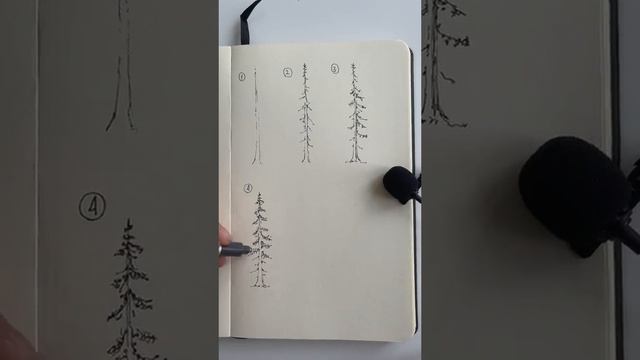 1 2 3
4